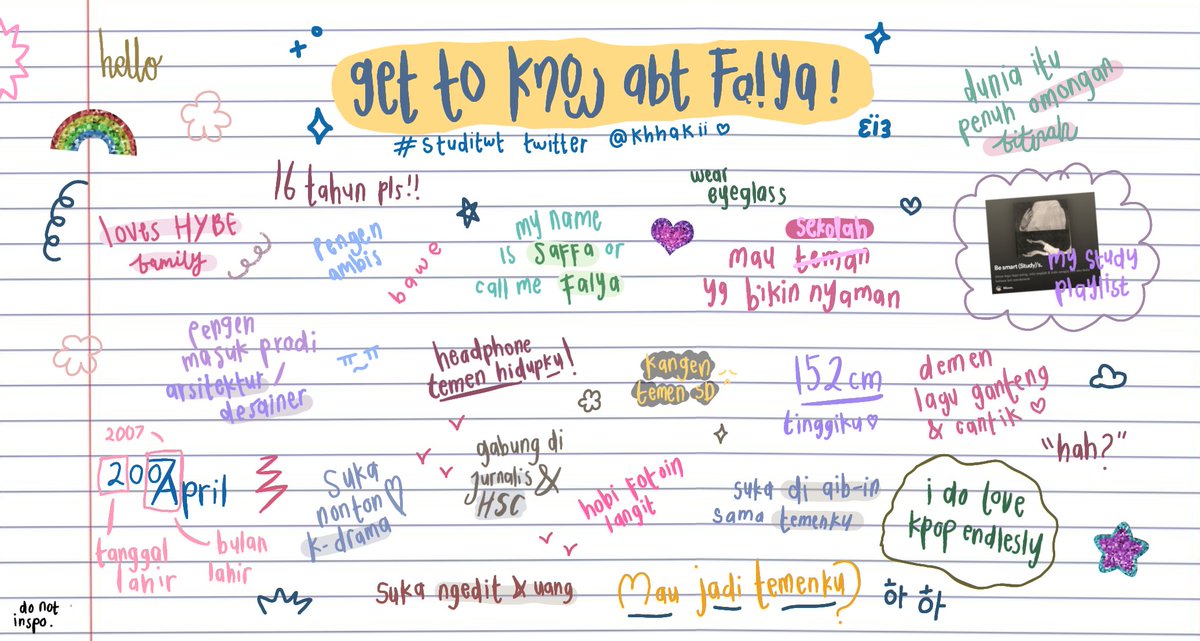 hello
get to know abt Falya!
#studitwt twitter @khhakii ♡
dunia itu
penuh omongan
fitnah
16 tahun pls!!
wear
eyeglass
loves HYBE
family
pengen
ambis
bawe
my name
is SAFFA or
call me Falya
sekolah
mau teman
yg bikin nyaman
Be smart (Study)'s.
my study
playlist
pengen
masuk prodi
arsitektur /
desainer
π_π
headphone
temen hidupku!
kangen
temen SD
152 cm
tinggiku ♡
demen
lagu ganteng
& cantik ♡
"hah?"
2007
2007April
tanggal
lahir
bulan
lahir
suka
nonton
k-drama
gabung di
jurnalis &
HSC
hobi fotoin
langit
suka di aib-in
sama temenku
i do love
kpop endlesly
suka ngedit & uang
Mau jadi temenku?
하 하
do not
inspo.